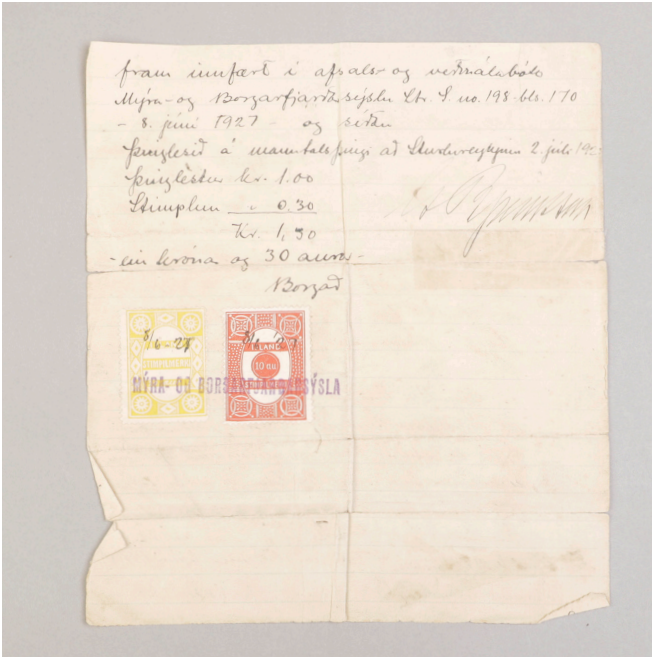 fram innfært i afsals- og veðmálabók
Mýra- og Borgarfjarðarsýslu Ltr. S. no. 198. bls. 170
- 8. júni 1927 - og síðan
þinglesið á manntalsþingi að Sturlureykjum 2. júlí 19
Þinglestur kr. 1.00
Stimplun " 0.30
Kr. 1,30
- ein króna og 30 aurar -
Borgað
8/6 - 27
8/6 - 27
ÍSLAND
10 au
MÝRA- OG BORGARFJARÐARSÝSLA